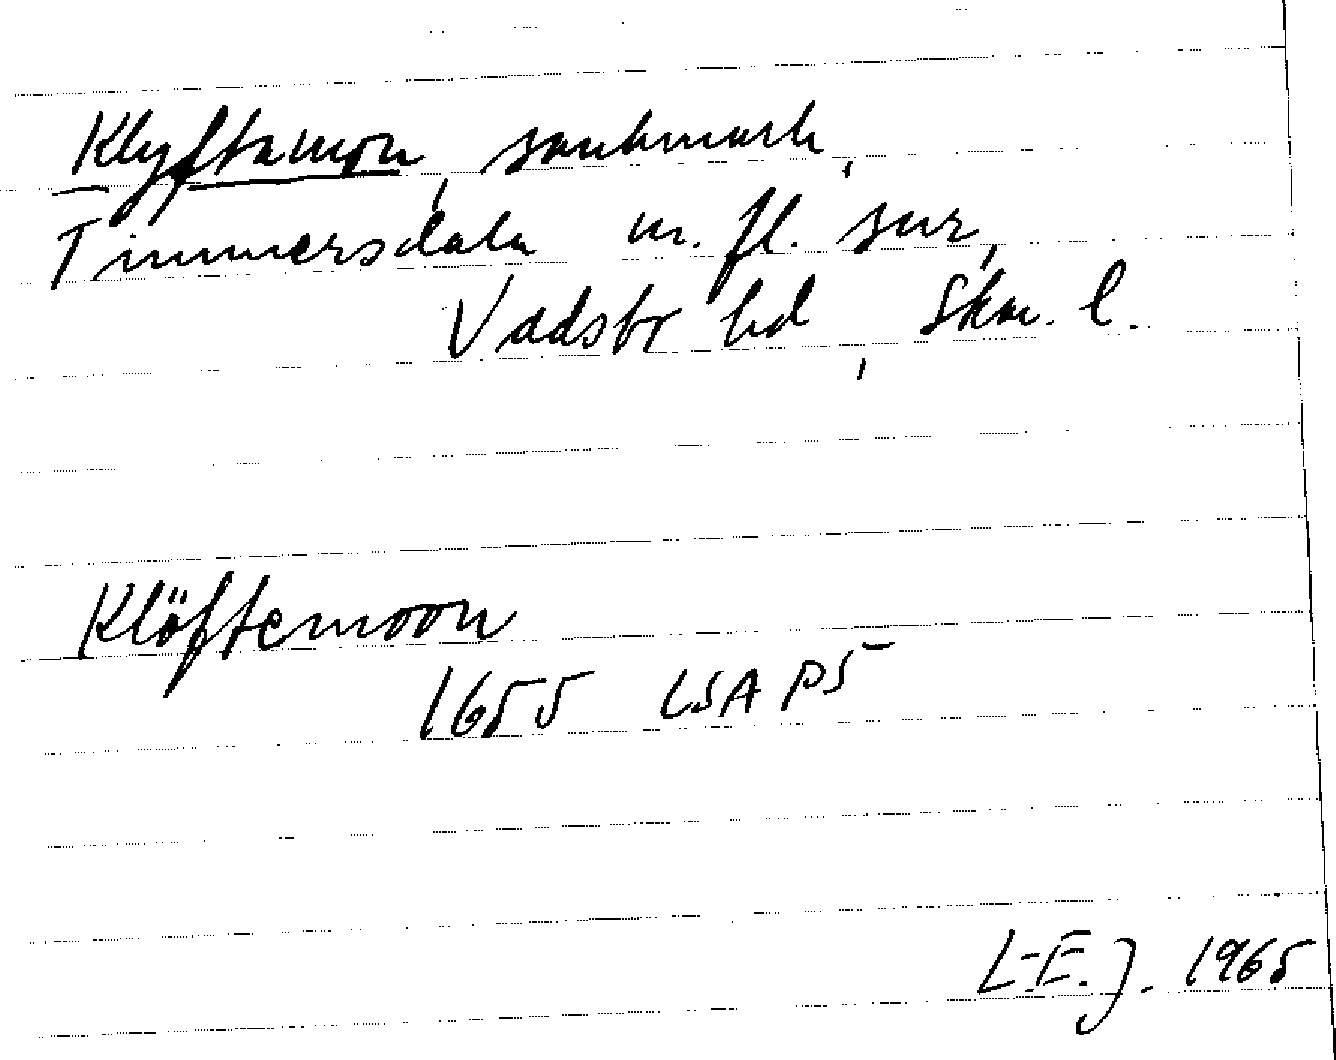 Klyftamon, sankmark,
Timmersdala m. fl. snr,
Vadsbr hd, Skar. l.
Klöftemoon
1655 LSA P5
L-E. J. 1965